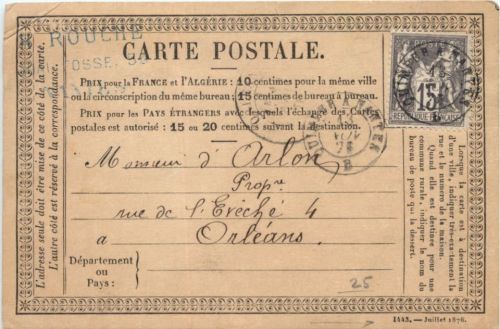 ROUCHÉ
FOSSE, 5
CARTE POSTALE.
PRIX pour la FRANCE et l'ALGÉRIE : 10 centimes pour la même ville
ou la circonscription du même bureau : 15 centimes de bureau à bureau.
PRIX pour les PAYS ÉTRANGERS avec lesquels l'échange des Cartes
postales est autorisé : 15 ou 20 centimes suivant la destination.
15
QUIMPER A NANTES
B
QUIMPER A NANTES
B
Monsieur d'Arlon
Propre
rue de l'Évêché 4
à Orléans.
Département
ou
Pays :
25
L'adresse seule doit être mise de ce côté de la carte.
L'autre côté est réservé à la correspondance.
Lorsque la carte est à destination
d'une ville, indiquer très-exactement la
rue et le numéro de la maison.
Quand elle est destinée pour une
commune rurale, indiquer le nom du
bureau de poste qui la dessert.
1443. — Juillet 1876.